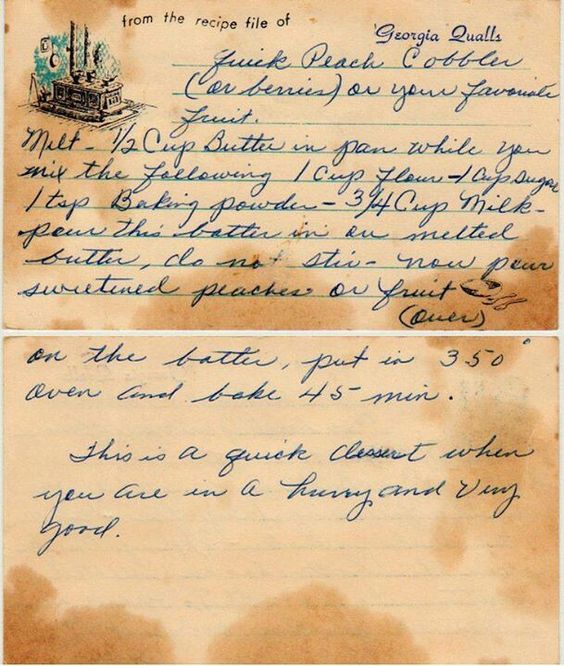 from the recipe file of
Georgia Qualls
Quick Peach Cobbler
(or berries) or your favorite
fruit.
Melt - 1/2 Cup Butter in pan while you
mix the following 1 Cup flour - 1 Cup sugar
1 tsp Baking powder - 3/4 Cup Milk -
pour this batter in on melted
butter, do not stir - now pour
sweetened peaches or fruit
(over)
on the batter, put in 350°
oven and bake 45 min.
This is a quick dessert when
you are in a hurry and very
good.